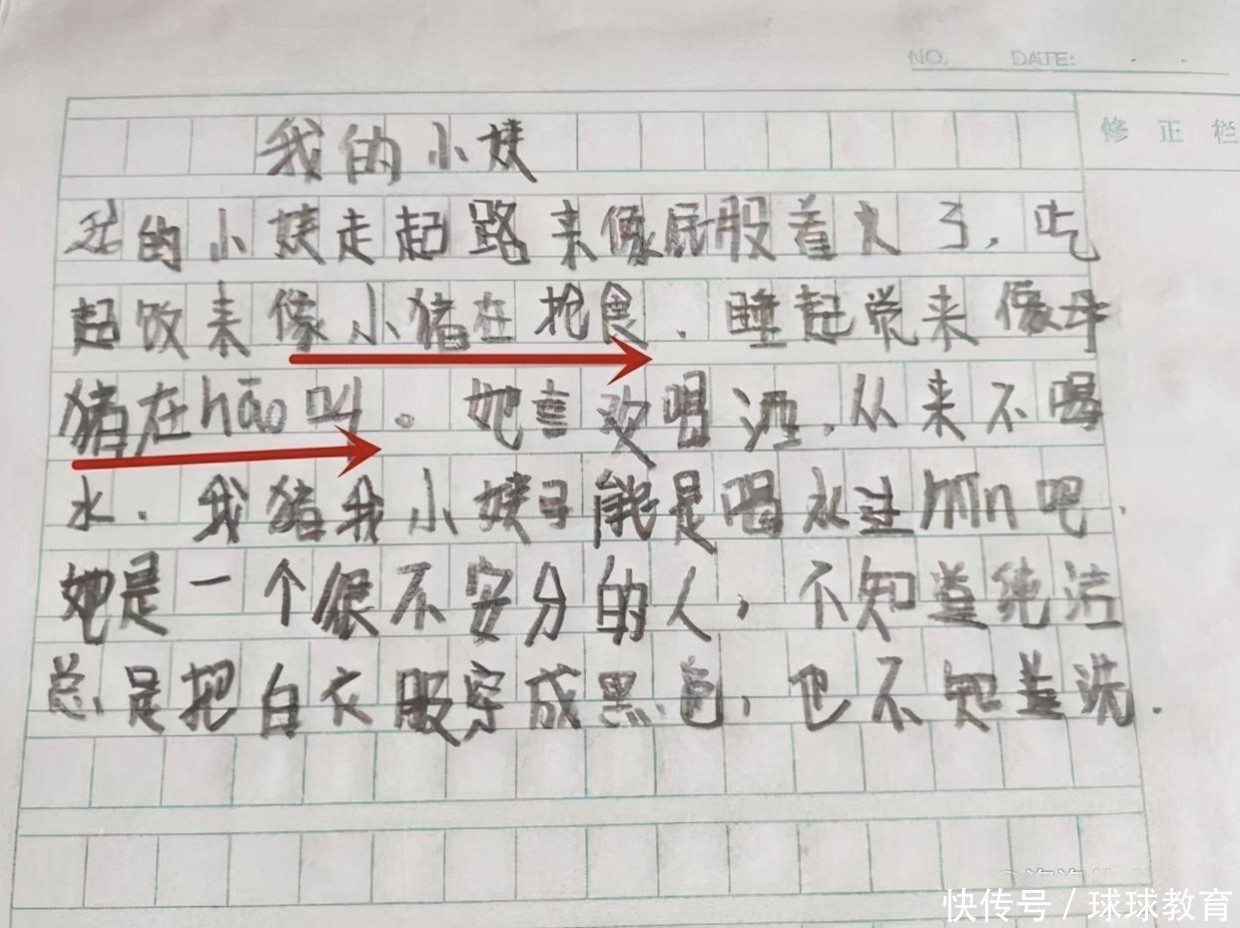 NO.    DATE:
修正栏
我的小妹
我的小妹走起路来像屁股着火了，吃
起饭来像小猪在抢食．睡起觉来像母
猪在hāo叫。她喜欢喝酒，从来不喝
水．我猪我小妹可能是喝水过mǐn吧．
她是一个很不安分的人，不知道纯洁
总是把白衣服穿成黑色，也不知道洗．
快传号 / 球球教育